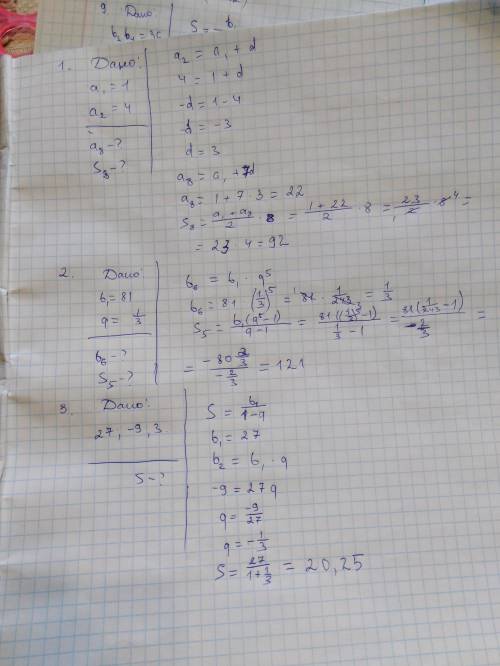 9. Дано:
S =
1. Дано:
a₁ = 1
a₂ = 4
a₈ - ?
S₈ - ?
a₂ = a₁ + d
4 = 1 + d
-d = 1 - 4
-d = -3
d = 3
a₈ = a₁ + 7d
a₈ = 1 + 7 · 3 = 22
S₈ = (a₁ + a₈)/2 · 8 = (1 + 22)/2 · 8 = 23/2 · 8 ⁴ =
= 23 · 4 = 92
2. Дано:
b₁ = 81
q = 1/3
b₆ - ?
S₅ - ?
b₆ = b₁ · q⁵
b₆ = 81 · (1/3)⁵ = 81 · 1/243 = 1/3
S₅ = b₁(q⁵ - 1)/(q - 1) = = 81(1/243 - 1)/(-2/3) =
= /(-2/3) = 121
3. Дано:
27, -9, 3
S - ?
S = b₁/(1 - q)
b₁ = 27
b₂ = b₁ · q
-9 = 27q
q = -9/27
q = -1/3
S = 27/(1 + 1/3) = 20,25